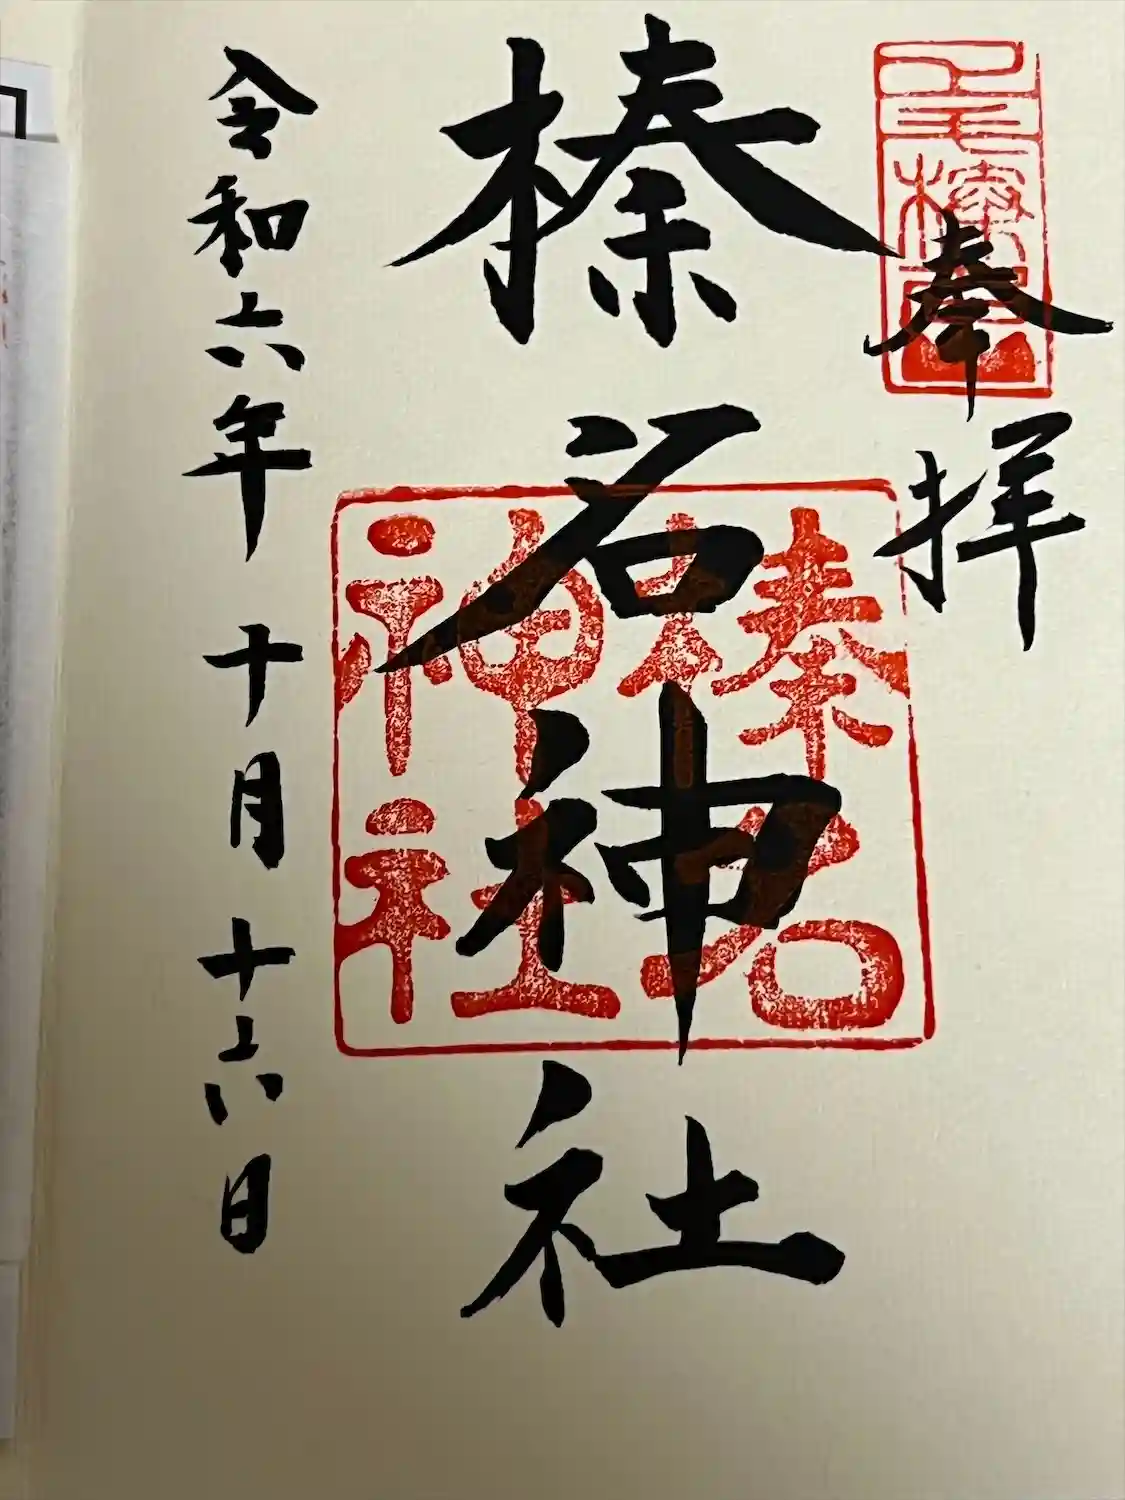 奉拝
榛名神社
榛名神社
令和六年十月十六日